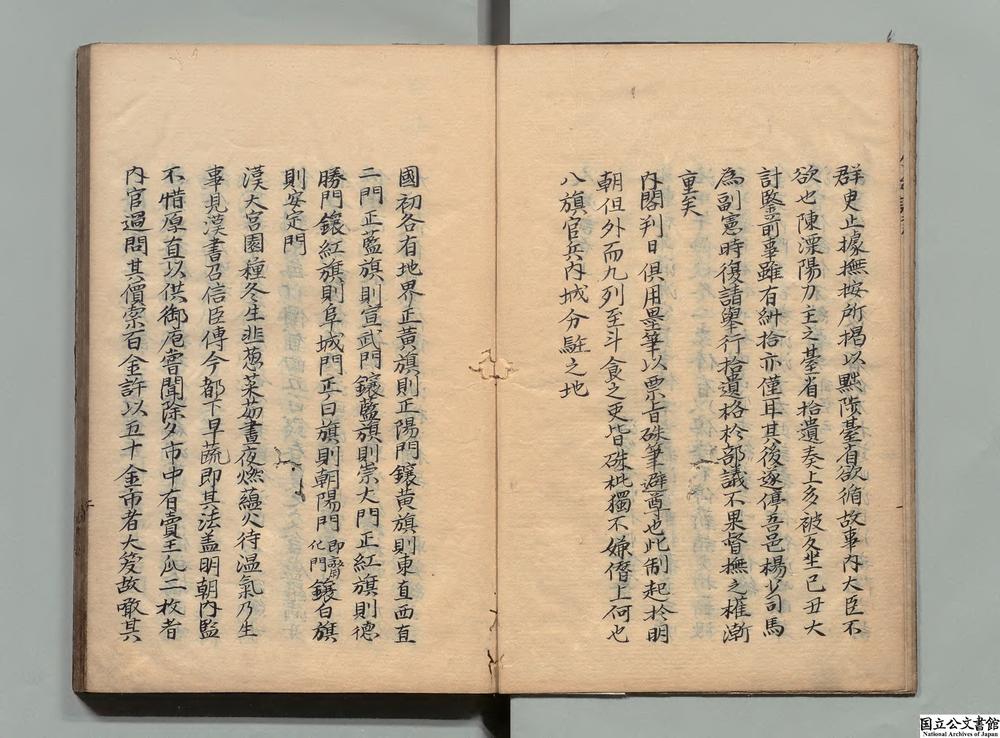 群吏止據撫按所揭以黜陟臺省欲循故事內大臣不
欲也陳溧陽力主之臺省拾遺奏上多被久坐己丑大
計鑒前事雖有糾拾亦僅耳其後遂停吾邑楊少司馬
為副憲時復請舉行拾遺格於部議不果督撫之權漸
重矣
內閣判日俱用墨筆以票旨硃筆避尊也此制起於明
朝但外而九列至斗食之吏皆硃批獨不嫌僭上何也
八旗官兵內城分駐之地
國初各有地界正黃旗則正陽門鑲黃旗則東直西直
二門正藍旗則宣武門鑲藍旗則崇文門正紅旗則德
勝門鑲紅旗則阜城門正白旗則朝陽門即齊化門鑲白旗
則安定門
漢大官園種冬生韭葱菜茹晝夜燃蘊火待溫氣乃生
事見漢書召信臣傳今都下早蔬即其法蓋明朝內監
不惜厚直以供御庖嘗聞除夕市中有賣王瓜二枚者
內官過問其價索百金許以五十金市者大笑故啖其
国立公文書館
National Archives of Japan